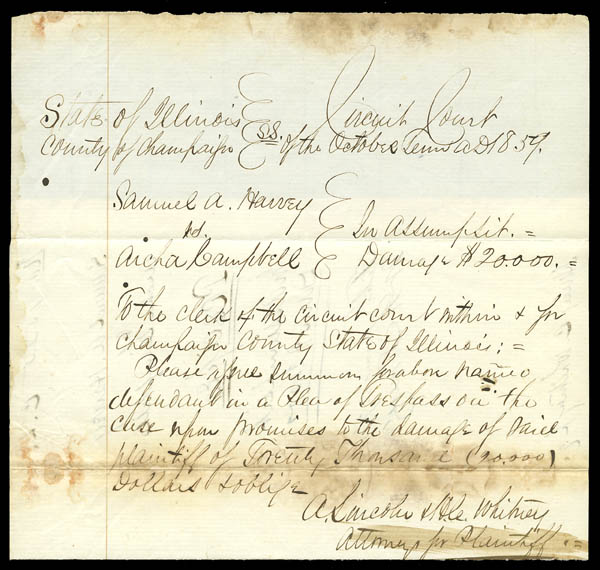 State of Illinois Circuit Court
County of Champaign SS. of the October Term AD 1859.
Samuel A. Harvey
vs. In Assumpsit. =
Archa Campbell Damage $20.000. =
To the clerk of the circuit court within & for
Champaign County State of Illinois; =
Please issue summon for above named
defendant in a Plea of Trespass on the
case upon promises to the damage of said
plaintiff of Twenty Thousand (20.000)
Dollars & oblige
A. Lincoln & H. C. Whitney
Attorneys for Plaintiff =